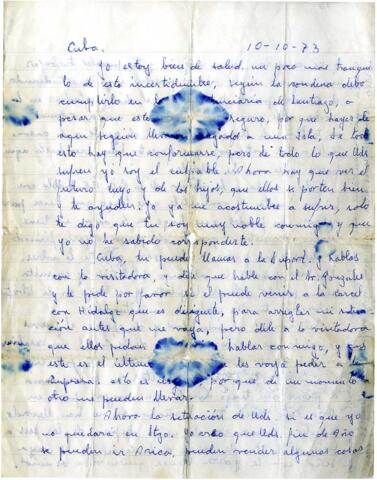 Cuba. 10-10-73
Yo estoy bien de salud, un poco más tranqui-
lo de esta incertidumbre, según la condena debo
cumplirlo en la de Santiago, a
pesar que esto seguro, por que hay de
aquí seguir a una Isla. De todo
esto hay que conformarse, pero de todo lo que Uds
sufren yo soy el culpable. Ahora hay que ver el
futuro tuyo y de los hijos, que ellos se porten bien
y te ayuden. Yo ya me acostumbre a sufrir, solo
te digo que tu soy muy noble conmigo y que
yo no he sabido corresponderte.
Cuba, tu puede llamar a la Support. y hablas
con la visitadora, y dile que hable con el Sr. Gonzalez
y le pide por favor si el puede venir a la carcel
con Hidalgo que es dirigente, para arreglar mi situa-
ción antes que me vaya, pero dile a la visitadora
que ellos pidan hablar conmigo, y
este es el último les voy a pedir a la
Empresa. esto es por que de un momento
otro me pueden llevar.
Ahora la situación de Uds. si el que yo
me quedara en Stgo. Yo creo que Uds. fin de Año
se pueden ir Arica, pueden vender algunas cosas